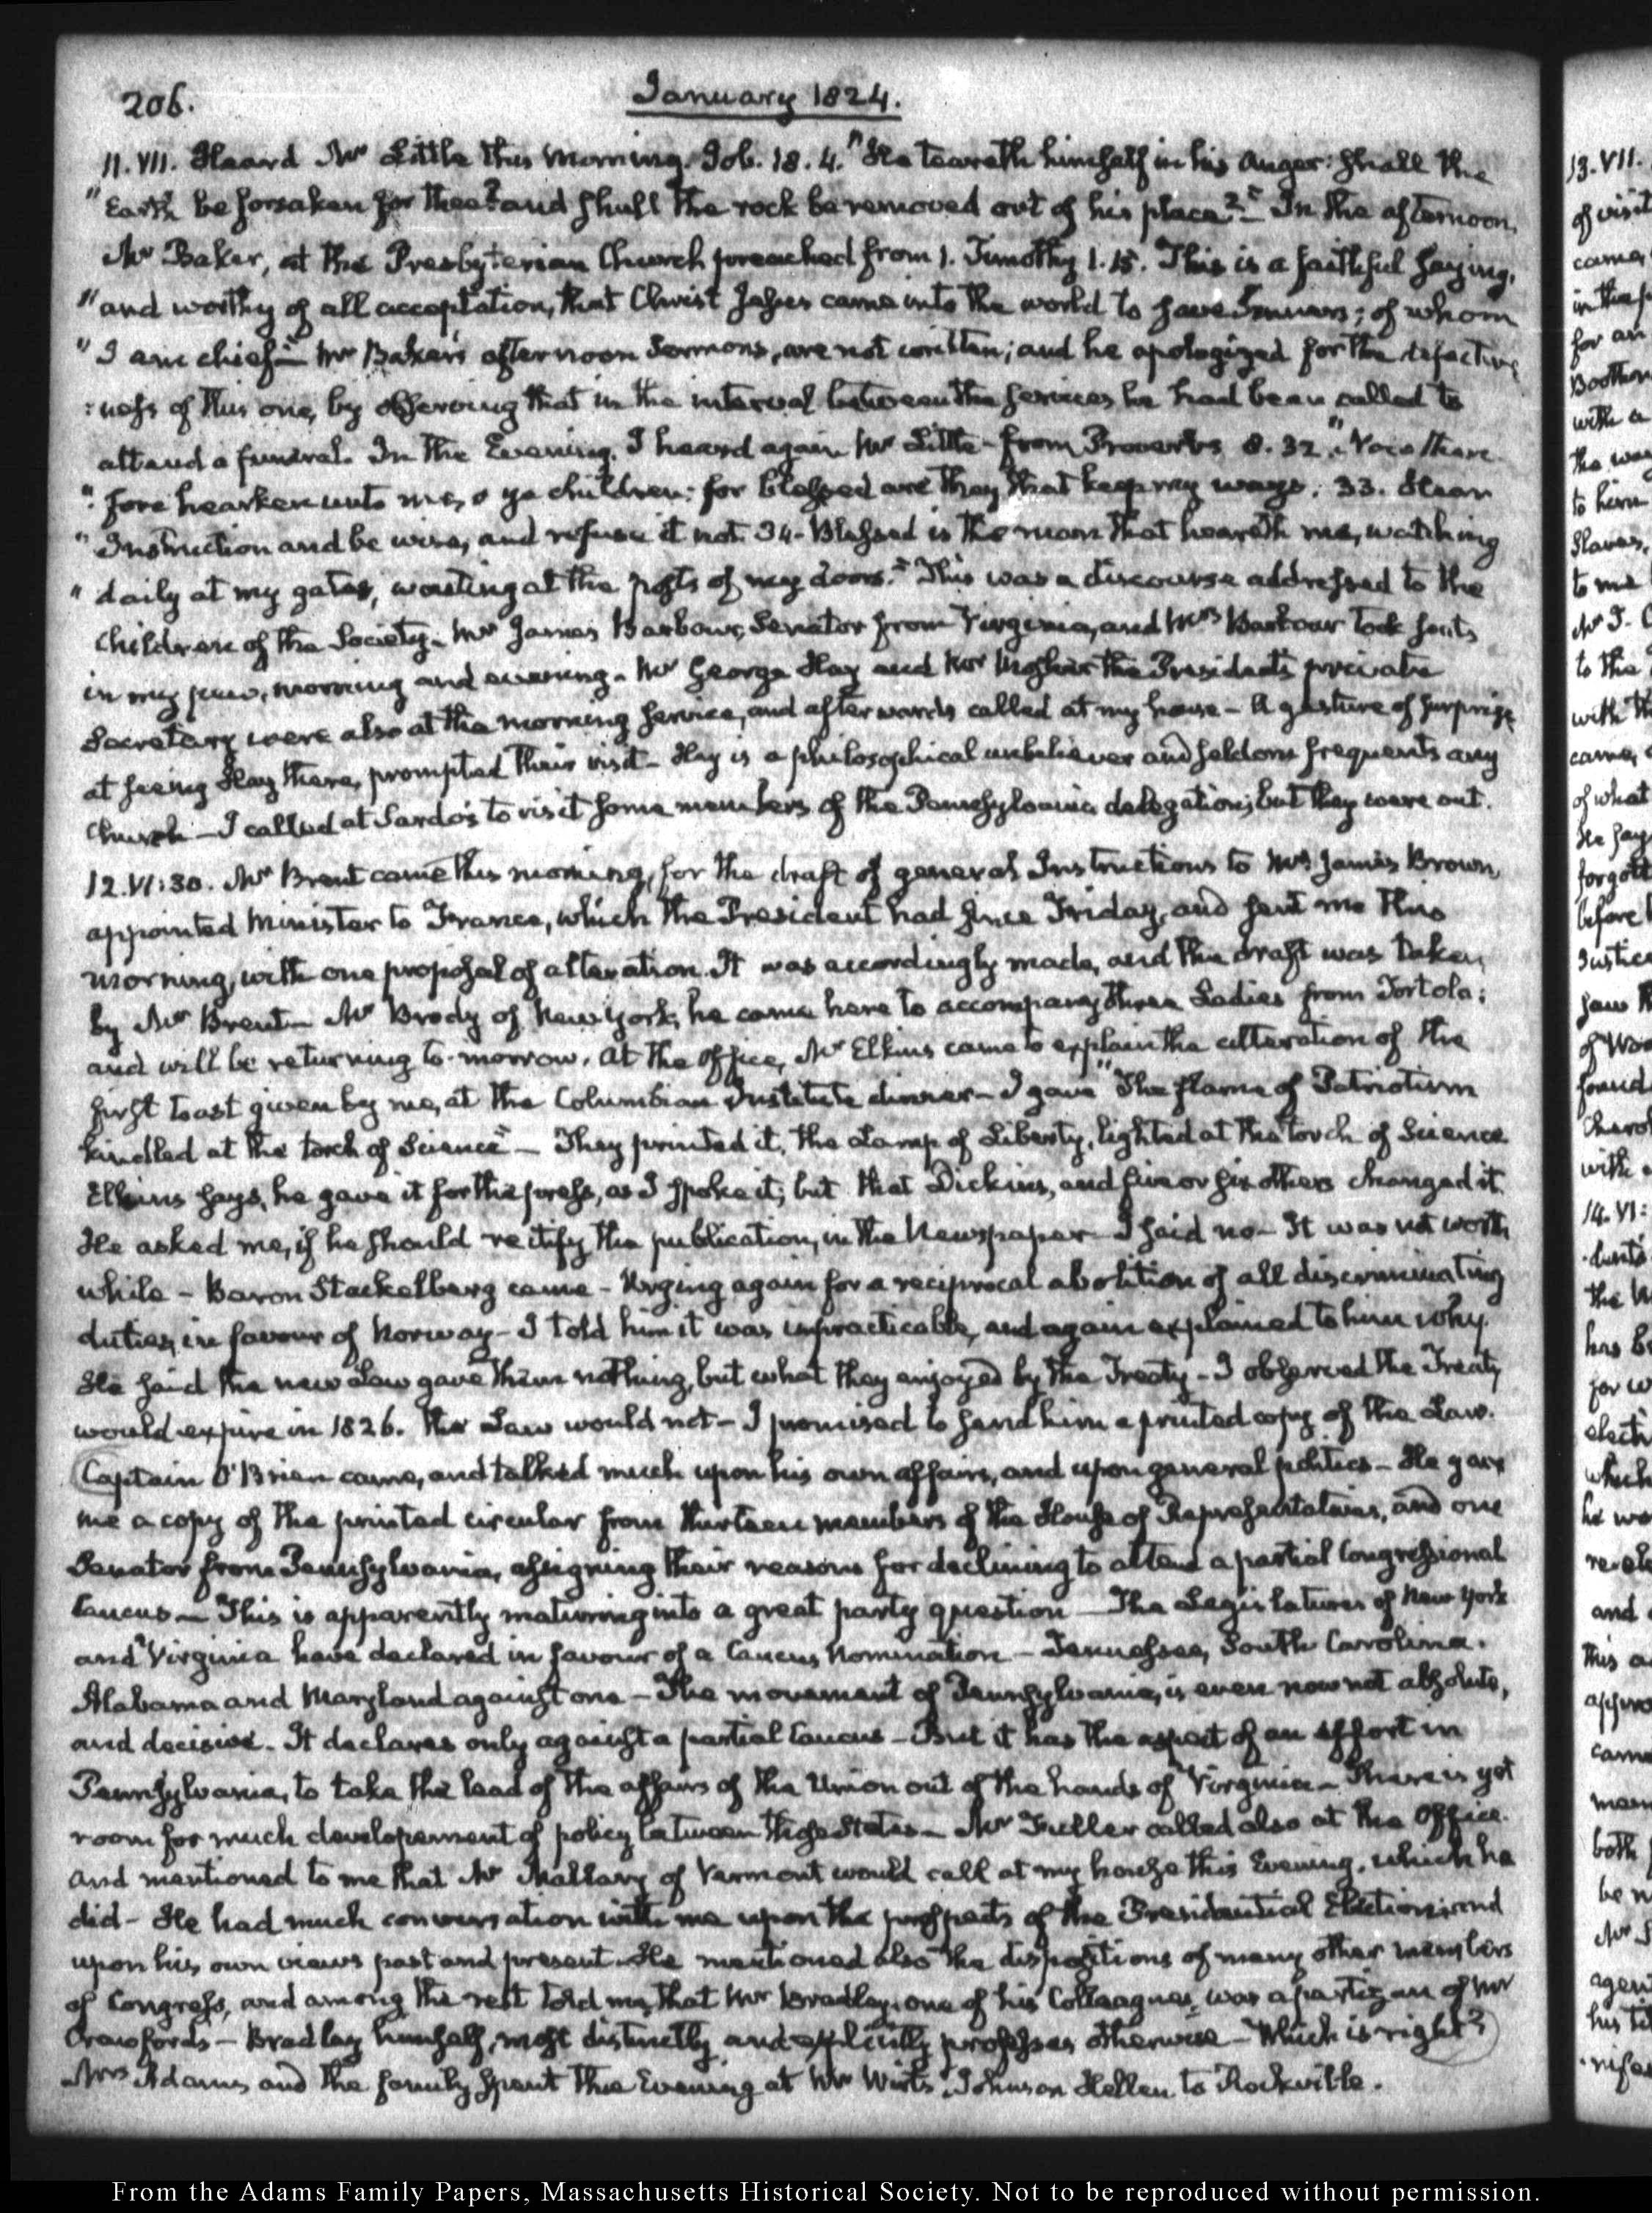 206.
January 1824.
11. VII. Heard Mr Little this Morning. Job. 18. 4. "He teareth himself in his anger: shall the
"Earth be forsaken for thee? and shall the rock be removed out of his place?" In the afternoon,
Mr Baker, at the Presbyterian Church preached from 1. Timothy 1. 15. This is a faithful saying,
"and worthy of all acceptation, that Christ Jesus came into the world to save Sinners; of whom
"I am chief." Mr Baker's afternoon Sermons, are not written; and he apologized for the defective
:ness of this one, by observing that in the interval between the services he had been called to
attend a funeral. In the Evening, I heard again Mr Little - from Proverbs 8. 32. "Now there
": fore hearken unto me, o ye children: for blessed are they that keep my ways. 33. Hear
"Instruction and be wise, and refuse it not. 34. Blessed is the man that heareth me, watching
"daily at my gates, waiting at the posts of my doors." This was a discourse addressed to the
Children of the Society. Mr James Barbour, Senator from Virginia, and Mrs Barbour took seats
in my pew, morning and evening. Mr George Hay and the President's private
Secretary were also at the morning service, and afterwards called at my house - A gesture of surprize
at seeing Hay there, prompted their visit - Hay is a philosophical unbeliever and seldom frequents any
Church - I called at Sardo's to visit some members of the Pennsylvania delegation; but they were out.
12. VI:30. Mr Brent came this morning, for the draft of general Instructions to Mr James Brown,
appointed Minister to France, which the President had since Friday, and sent me this
morning, with one proposal of alteration. It was accordingly made, and the draft was taken
by Mr Brent - Mr Brody of New York, he came here to accompany three Ladies from Tortola;
and will be returning to-morrow. At the Office, Mr Elkins came to explain the alteration of the
first toast given by me, at the Columbian Institute dinner - I gave "The flame of Patriotism
kindled at the torch of Science" - They printed it, the Lamp of Liberty, lighted at the torch of Science
Elkins says, he gave it for the press, as I spoke it; but that Dickins, and five or six others changed it
He asked me, if he should rectify the publication, in the Newspaper - I said no - It was not worth
while - Baron Stackelberg came - Urging again for a reciprocal abolition of all discriminating
duties, in favour of Norway - I told him it was impracticable, and again explained to him why.
He said the new Law gave them nothing, but what they enjoyed by the Treaty - I observed the Treaty
would expire in 1826. the Law would not - I promised to send him a printed copy of the Law.
Captain O'Brien came, and talked much upon his own affairs, and upon general politics - He gave
me a copy of the printed circular from thirteen members of the House of Representatives, and one
Senator from Pennsylvania, assigning their reasons for declining to attend a partial Congressional
Caucus - This is apparently maturing into a great party question - The Legislatures of New York
and Virginia have declared in favour of a Caucus Nomination - Tennessee, South Carolina.
Alabama and Maryland against one - The movement of Pennsylvania, is even now not absolute,
and decisive. It declares only against a partial Caucus - But it has the aspect of an effort in
Pennsylvania, to take the lead of the affairs of the Union out of the hands of Virginia - There is yet
room for much developement of policy between those States - Mr Fuller called also at the Office.
and mentioned to me that Mr Mallary of Vermont would call at my house this Evening. which he
did - He had much conversation with me upon the prospects of the Presidential Election; and
upon his own views past and present. He mentioned also the dispositions of many other members
of Congress, and among the rest told me, that Mr Bradley, one of his Colleagues, was a partizan of Mr
Crawfords - Bradley himself, most distinctly and explicitly professes otherwise - Which is right?
Mrs Adams and the family spent the Evening at Mr Wirt's. Johnson Hellen to Rockville.
From the Adams Family Papers, Massachusetts Historical Society. Not to be reproduced without permission.